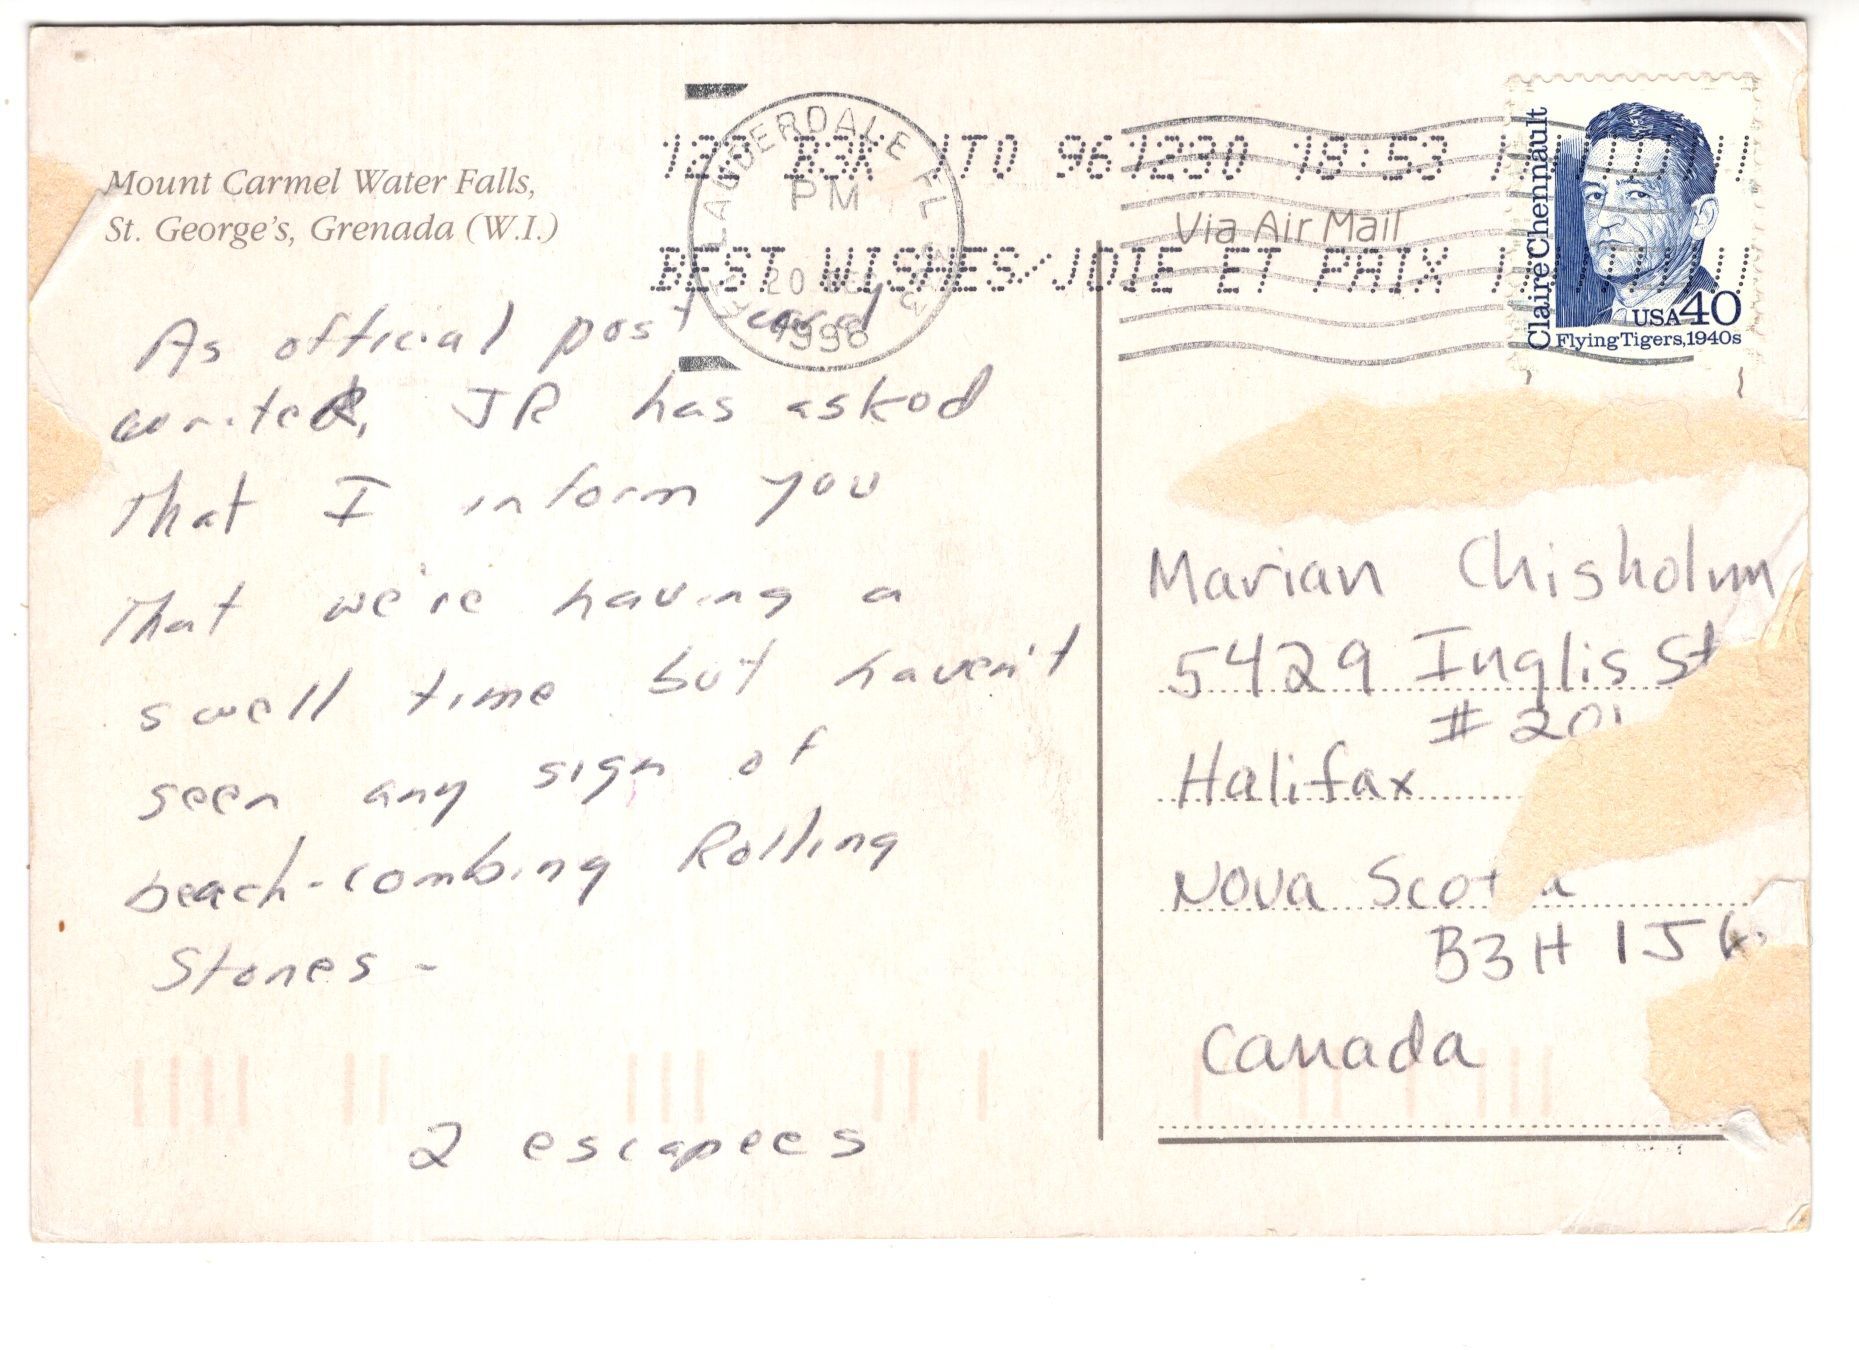 Mount Carmel Water Falls,
St. George's, Grenada (W.I.)
As official post card
writer, JR has asked
that I inform you
that we're having a
swell time but haven't
seen any sign of
beach-combing Rolling
Stones -
2 escapees
LAUDERDALE FL
PM
20
1996
B3K 961230 18:53
BEST WISHES/JOIE ET PAIX
Via Air Mail
Claire Chennault
USA 40
Flying Tigers, 1940s
Marian Chisholm
5429 Inglis St
# 201
Halifax
Nova Scotia
B3H 1J
Canada